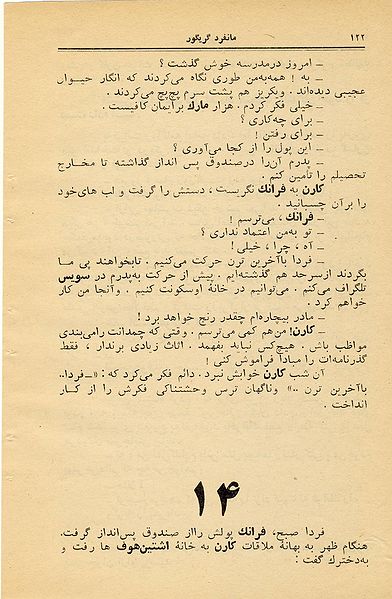 ۱۲۲ مانفرد گریگور
ــ امروز درمدرسه خوش گذشت ؟
ــ به ! همه‌به‌من طوری نگاه می‌کردند که انگار حیـوان
عجیبی دیده‌اند . وبکریز هم پشت سرم پچ‌پچ می‌کردند .
ــ خیلی فکر کردم . هزار مارك برایمان کافیست .
ــ برای چه‌کاری ؟
ــ برای رفتن !
ــ این پول را از کجا می‌آوری ؟
ــ پدرم آن‌را درصندوق پس انداز گذاشته تا مخـارج
تحصیلم را تأمین کنم .
کارن به فرانك نگریست ، دستش را گرفت و لب های‌خود
را برآن چسبانید .
ــ فرانك ، می‌ترسم !
ــ تو به‌من اعتماد نداری ؟
ــ آه ، چرا ، خیلی !
ــ فردا باآخرین ترن حرکت می‌کنیم . تابخواهند پی ما
بگردند ازسرحد هم گذشته‌ایم . پیش از حرکت به‌پدرم در سویس
تلگراف می‌کنم . می‌توانیم در خانهٔ اوسکونت کنیم . وآنجا من کار
خواهم کرد .
ــ مادر بیچاره‌ام چقدر رنج خواهد برد !
ــ کارن! من‌هم کمی می‌ترسم . وقتی که چمدانت رامی‌بندی
مواظب باش . هیچ‌کس نباید بفهمد . اثاث زیادی برندار ، فقط
گذرنامه‌ات را مبادا فراموش کنی !
آن شب کارن خوابش نبرد . دائم فکر می‌کرد که : «ــ فردا..
باآخرین ترن ..» وناگهان ترس وحشتناکی فکرش را از کـار
انداخت .
۱۴
فردا صبح، فرانك پولش رااز صندوق پس‌انداز گرفت.
هنگام ظهر به بهانهٔ ملاقات کارن به خانهٔ اشتین‌هوف ها رفت و
به‌دخترك گفت :